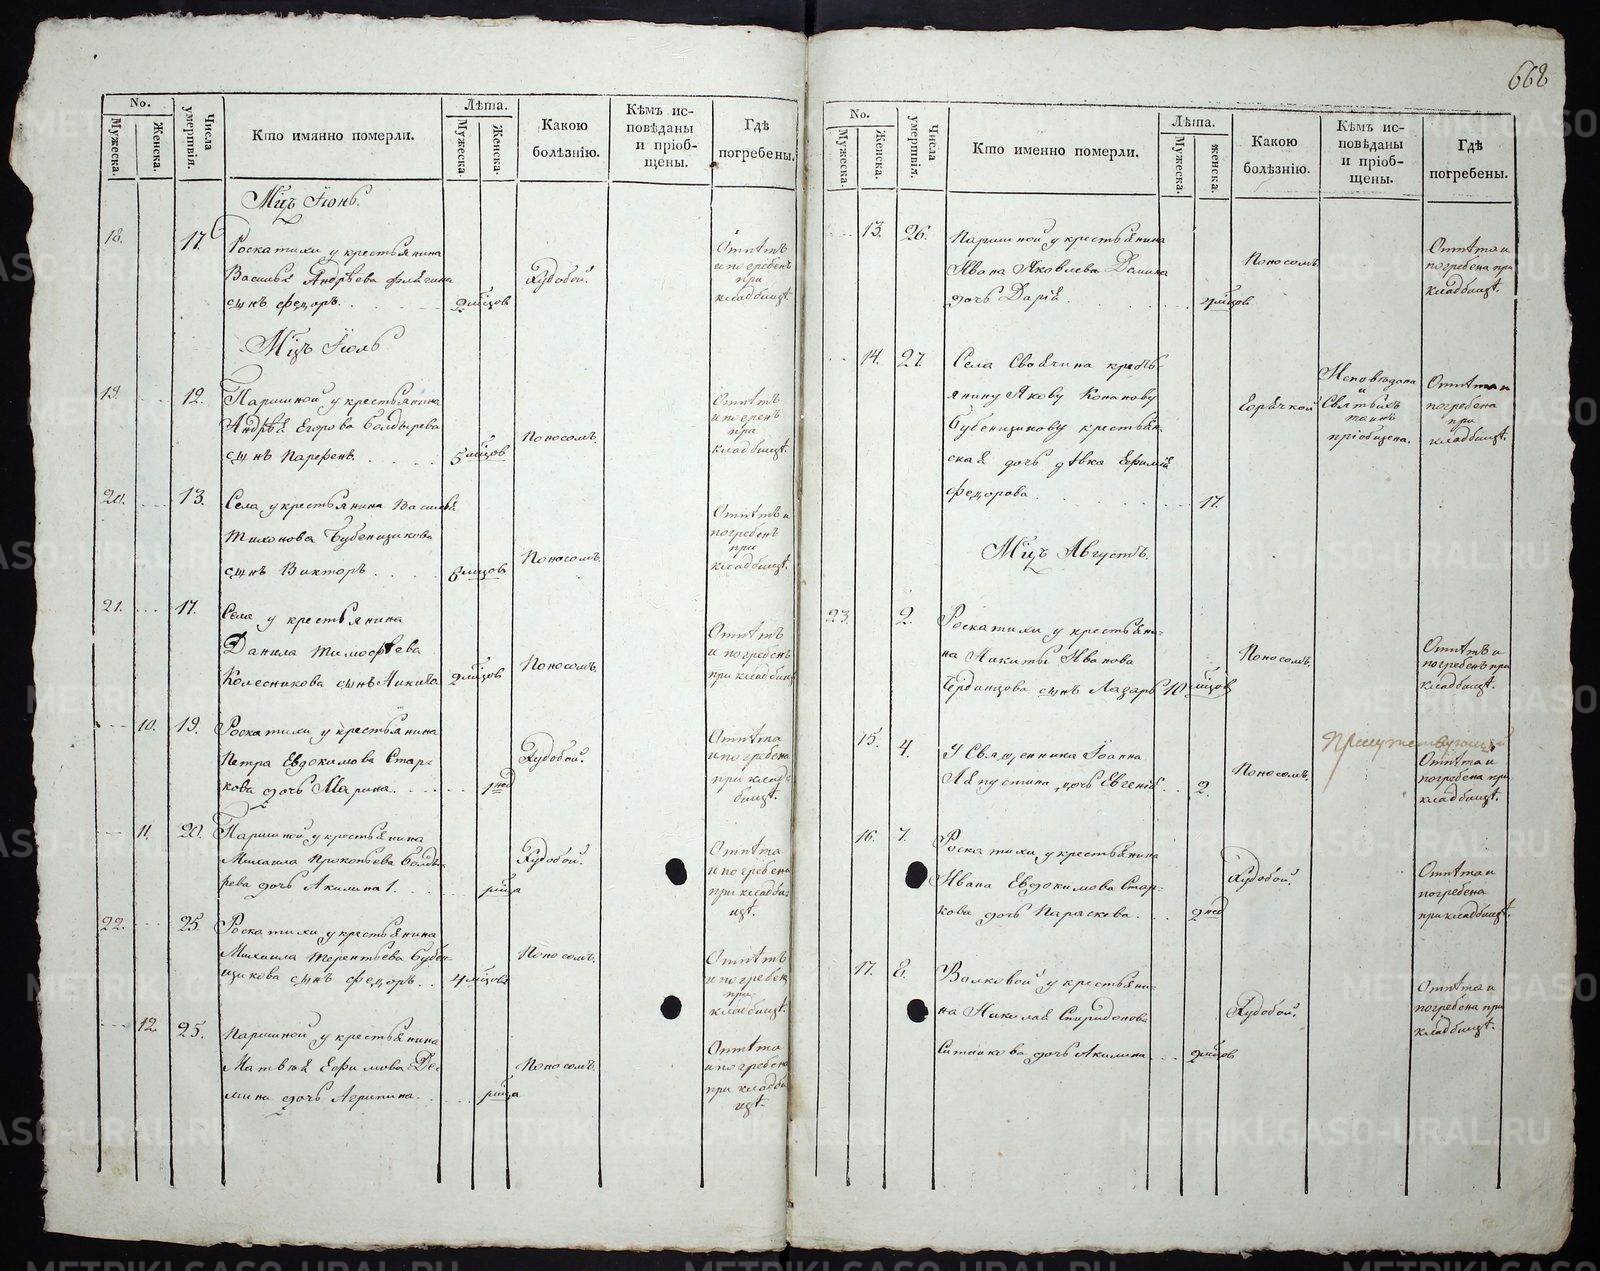 668
No.
Мужеска.
Женска.
Числа умертвія.
Кто имянно померли.
Лѣта.
Мужеска
Женска.
Какою болѣзнію.
Кѣмъ исповѣданы и пріобщены.
Гдѣ погребены.
Мцъ Іюнь.
18. 17. Роскатихи у крестьянина
Василья Андрѣева
сынъ Федоръ. 2 мцов
Худобой.
Отпѣтъ
и погребенъ
при
кладбищѣ.
Мцъ Іюль
19. 12. Паршиной у крестьянина
Андрѣя Егорова Болдырева
сынъ Парфенъ. 5 мцов
Поносомъ.
Отпѣтъ
и погренъ
при
кладбищѣ.
20. 13. Села у крестьянина Василья
Тихонова Бубенщикова
сынъ Викторъ. 5 мцов
Поносомъ.
Отпѣтъ и
погребенъ
при
кладбищѣ.
21. 17. Села у крестьянина
Данила Тимофѣева
Колесникова сынъ Никита 2 мцов
Поносомъ.
Отпѣтъ
и погребенъ
при кладбищ
10. 19. Роскатихи у крестьянина
Петра Евдокимова Стар-
кова дочь Марина. 1 нед
Худобой.
Отпѣта
и погребена
при клад
бищѣ.
11. 20. Паршиной у крестьянина
Михаила Прокопьева Болды
рева дочь Акилина 1. мца
Худобой.
Отпѣта
и погребена
при кладби
щѣ.
22. 25. Роскатихи у крестьянина
Михаила Терентьева Бубен-
щикова сынъ Федоръ. 4 мцов
Поносомъ.
Отпѣтъ
и погребен
при
кладбищѣ.
12. 25. Паршиной у крестьянина
Матвѣя Ефимова Де-
мина дочь Агрипина. мца
Поносомъ.
Отпѣта
и погребена
при кладби
щѣ.
No.
Мужеска.
Женска.
Числа умертвія.
Кто именно померли.
Лѣта.
Мужеска.
женска.
Какою болѣзнію.
Кѣмъ исповѣданы и пріобщены.
Гдѣ погребены.
13. 26. Паршиной у крестьянина
Ивана Яковлева Демина
дочь Дарія. 4 мцов
Поносомъ
Отпѣта и
погребена при
кладбищѣ.
14. 27. Села крестъ-
янину Якову Кононову
Бубенщикову крестьян-
ская дочь дѣвка Ефимія
Федорова. 17.
Горячкой
Исповѣдана
и
Святыхъ
таинъ
пріобщена.
Отпѣта и
погребена
при
кладбищѣ.
Мцъ Августъ.
23. 2. Роскатихи у крестьяни-
на Никиты Иванова
сынъ Лазарь 10 мцов
Поносомъ.
Отпѣтъ и
погребенъ при
кладбищѣ.
15. 4. У Священника Іоанна
дочь Евгенія. 2.
Поносомъ.
Отпѣта и
погребена при
кладбищѣ.
16. 7. Роскатихи у крестьянина
Ивана Евдокимова Стар-
кова дочь Параскева. 2 нед
Худобой.
Отпѣта и
погребена
при кладбищѣ.
17. 8. Волковой у крестьяни-
на Николая Спиридонова
дочь Акилина. 2 мцов
Худобой.
Отпѣта и
погребена при
кладбищѣ.
METRIKI.GASO-URAL.RU